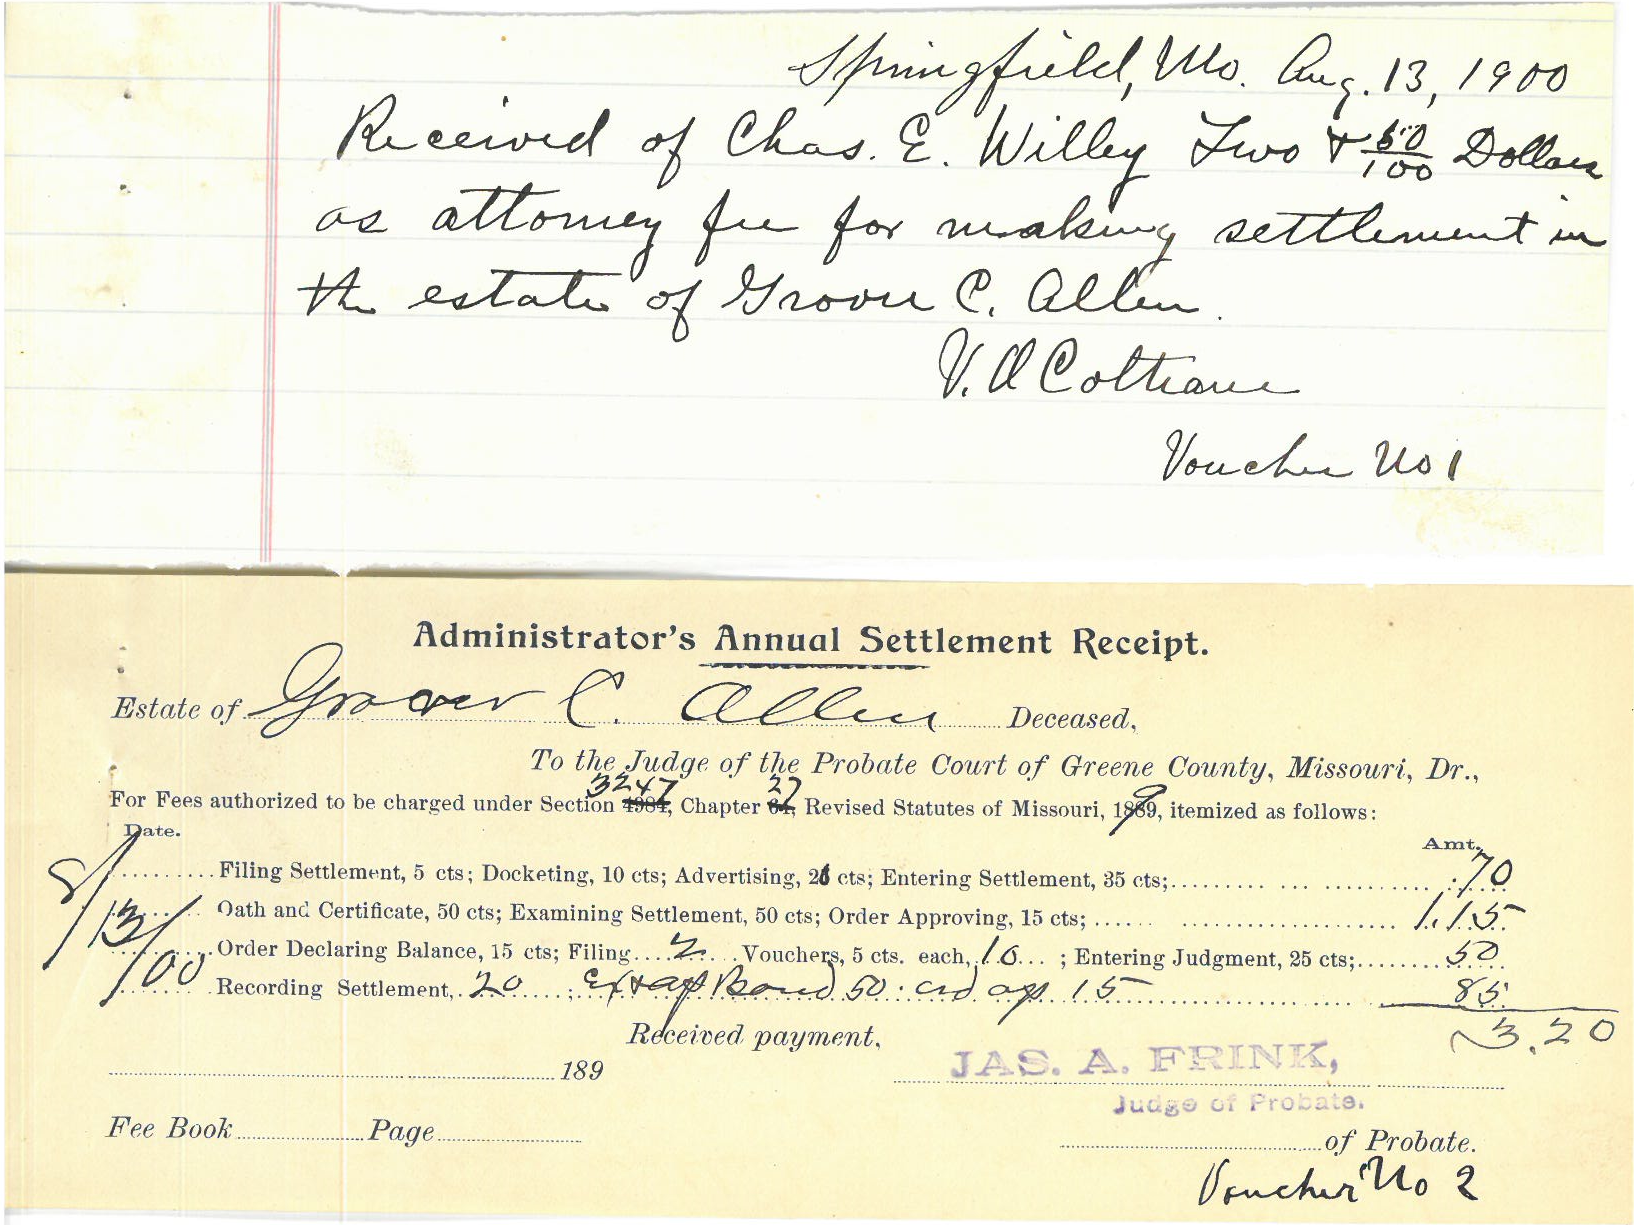 Springfield, Mo. Aug. 13, 1900
Received of Chas. E. Willey Two & 50/100 Dollars
as attorney fee for making settlement in
the estate of Grover C. Allen.
V. O Coltrane
Voucher No 1
Administrator's Annual Settlement Receipt.
Estate of Grover C. Allen Deceased,
To the Judge of the Probate Court of Greene County, Missouri, Dr.,
3247 27
For Fees authorized to be charged under Section 4984, Chapter 84, Revised Statutes of Missouri, 1899, itemized as follows:
Date. Amt.
8/13/00
Filing Settlement, 5 cts; Docketing, 10 cts; Advertising, 20 cts; Entering Settlement, 35 cts; .70
Oath and Certificate, 50 cts; Examining Settlement, 50 cts; Order Approving, 15 cts; 1.15
Order Declaring Balance, 15 cts; Filing 2 Vouchers, 5 cts. each, 10 ; Entering Judgment, 25 cts; 50
Recording Settlement, 20 ; Bond 50. 15 85
3.20
Received payment,
JAS. A. FRINK,
189
Judge of Probate.
Fee Book Page
of Probate.
Voucher No 2